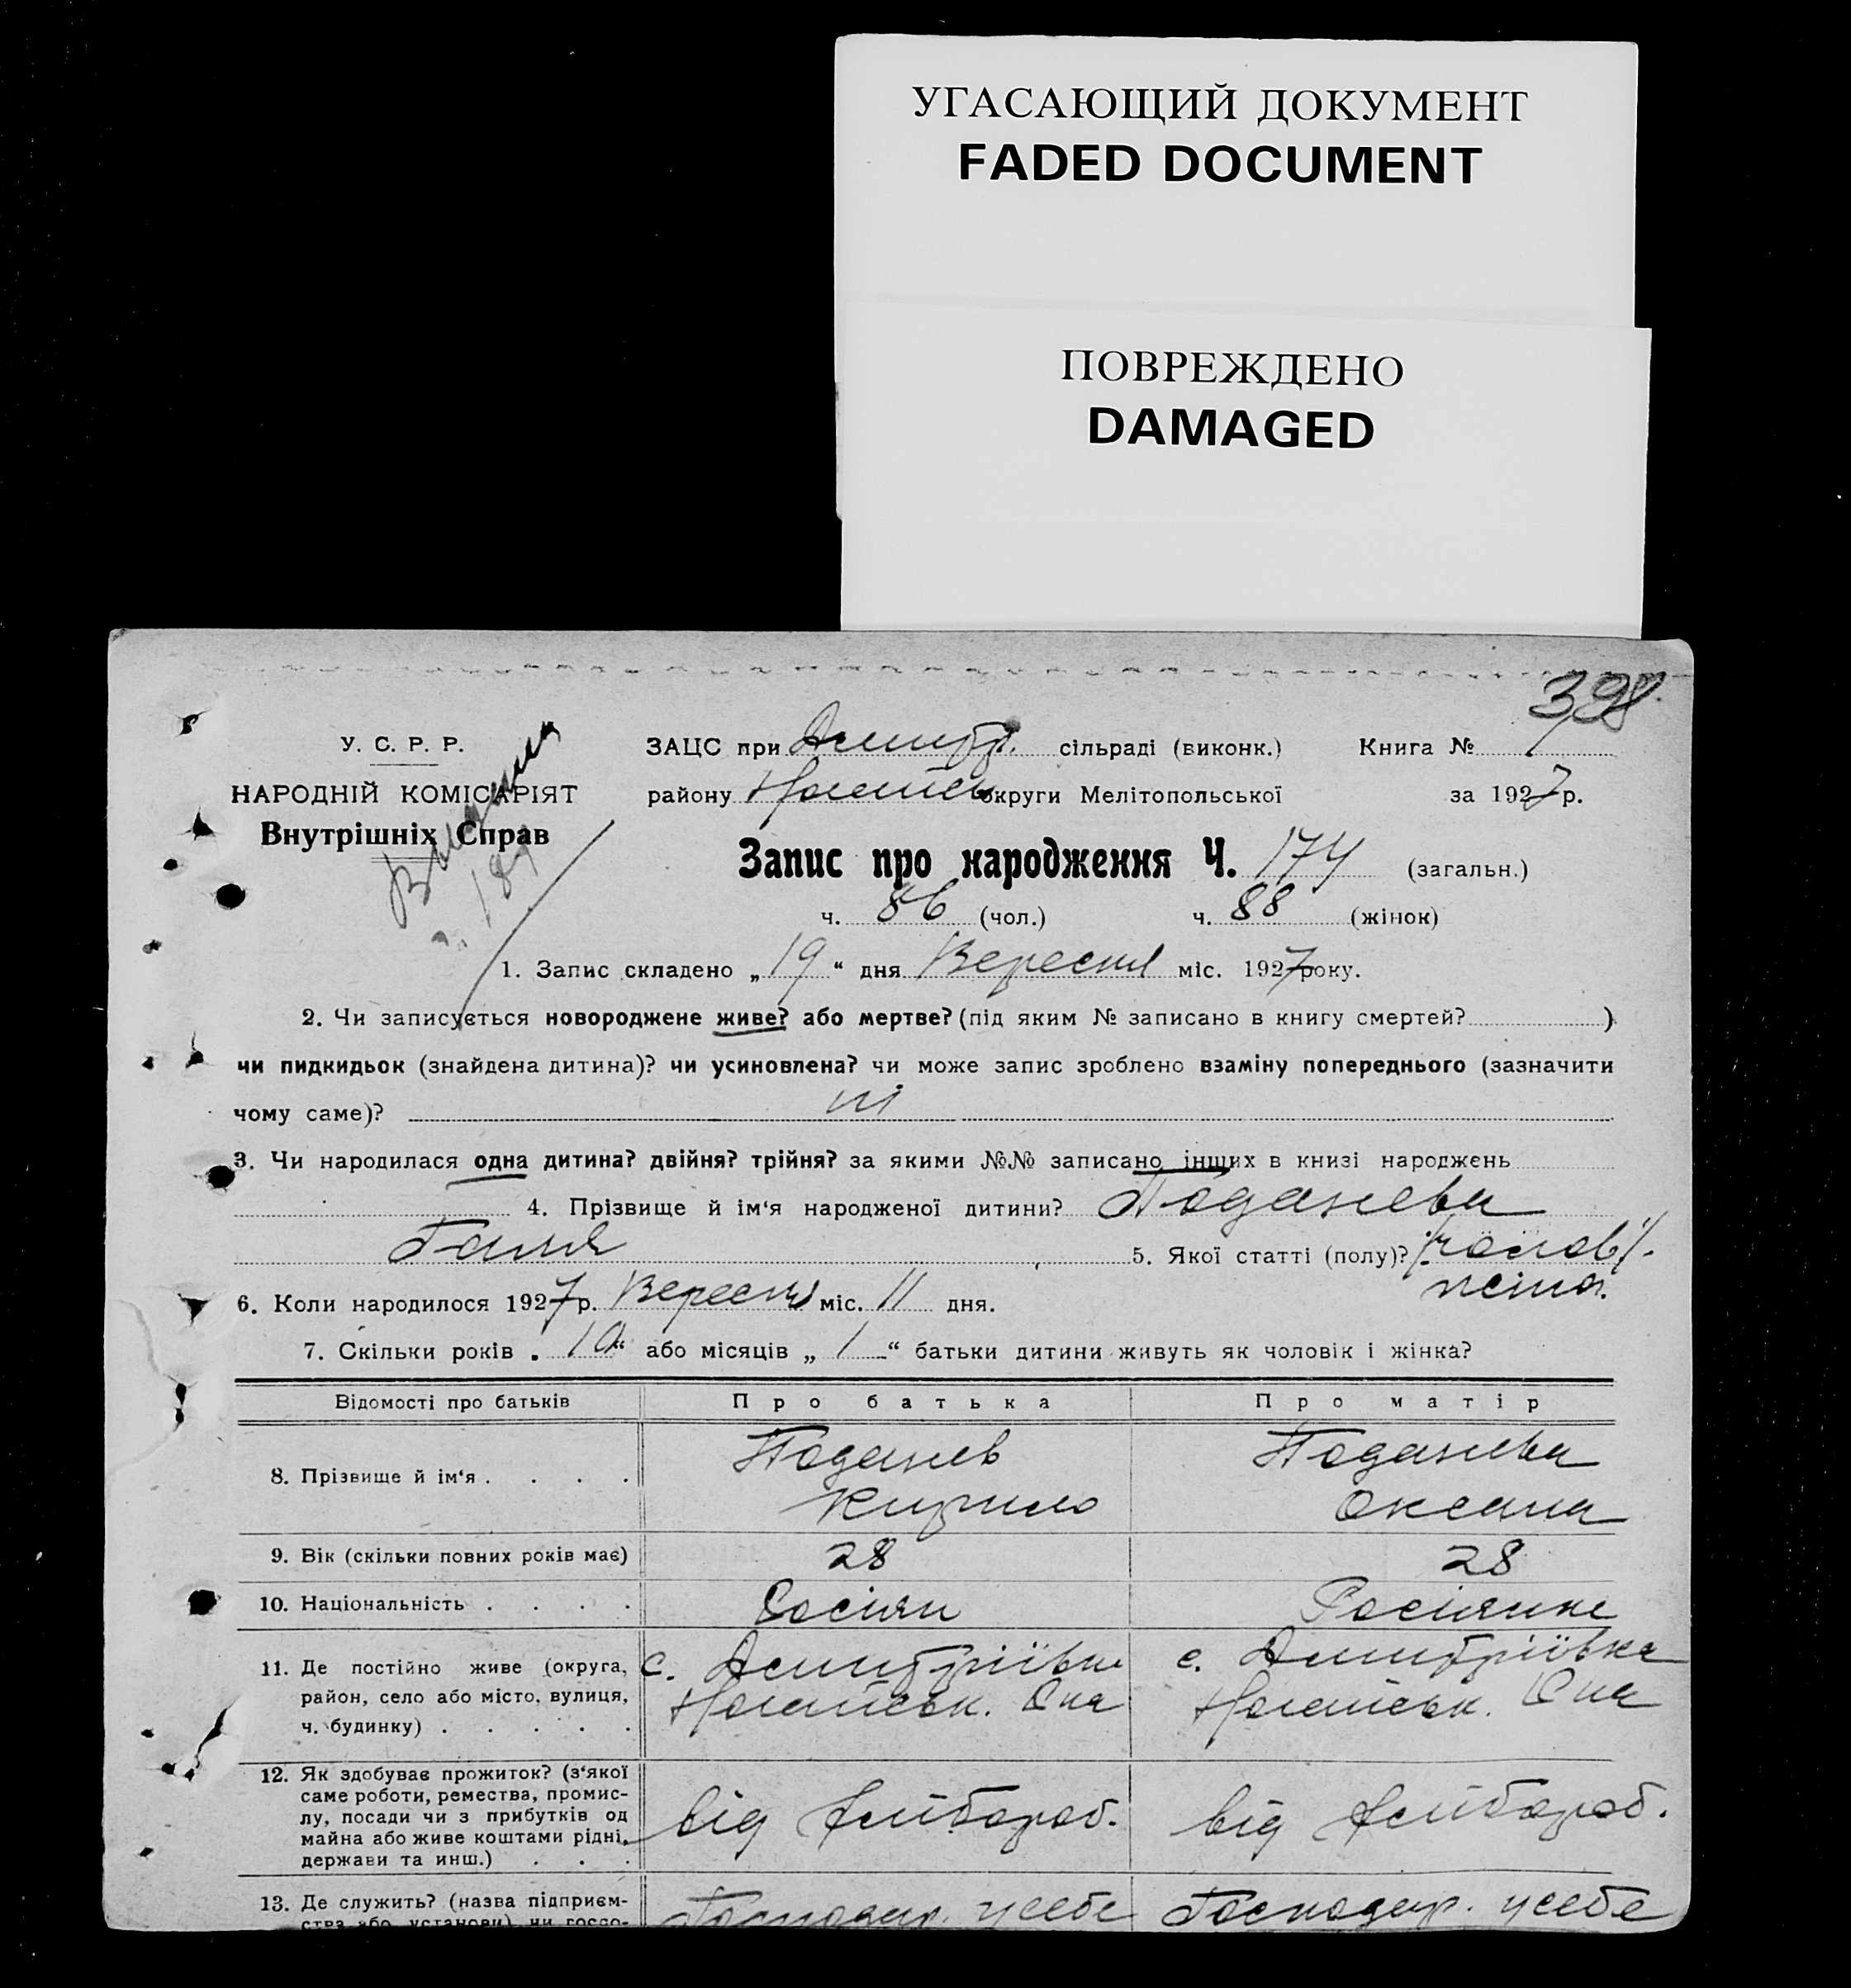 УГАСАЮЩИЙ ДОКУМЕНТ
FADED DOCUMENT
ПОВРЕЖДЕНО
DAMAGED
398
У. С. Р. Р.
НАРОДНІЙ КОМІСАРІЯТ
Внутрішніх Справ
ЗАЦС при Дмитр. сільраді (виконк.) Книга №
району округи Мелітопольської за 1927 р.
Запис про народження Ч. 174 (загальн.)
ч. 86 (чол.) ч. 88 (жінок)
1. Запис складено „19“ дня Вересня міс. 1927 року.
2. Чи записується новороджене живе? або мертве? (під яким № записано в книгу смертей? )
чи пидкидьок (знайдена дитина)? чи усиновлена? чи може запис зроблено взаміну попереднього (зазначити
чому саме)? ні
3. Чи народилася одна дитина? двійня? трійня? за якими №№ записано інших в книзі народжень
4. Прізвище й ім‘я народженої дитини?
Галя 5. Якої статті (полу)?
6. Коли народилося 1927 р. Вересня міс. 11 дня.
7. Скільки років „10“ або місяців „ “ батьки дитини живуть як чоловік і жінка?
Відомості про батьків Про батька Про матір
8. Прізвище й ім‘я . . . .
Кирило Оксана
9. Вік (скільки повних років має) 28 28
10. Національність . . . . Росіян Росіянка
11. Де постійно живе (округа, с. Дмитріївка с. Дмитріївка
район, село або місто, вулиця, Ногайськ. Ногайськ.
ч. будинку) . . . . .
12. Як здобуває прожиток? (з‘якої
саме роботи, ремества, промис-
лу, посади чи з прибутків од
майна або живе коштами рідні, від хлібороб. від хлібороб.
держави та инш.) . . .
13. Де служить? (назва підприєм- Господар. у себе Господар. у себе
ства або установи) чи госпо-